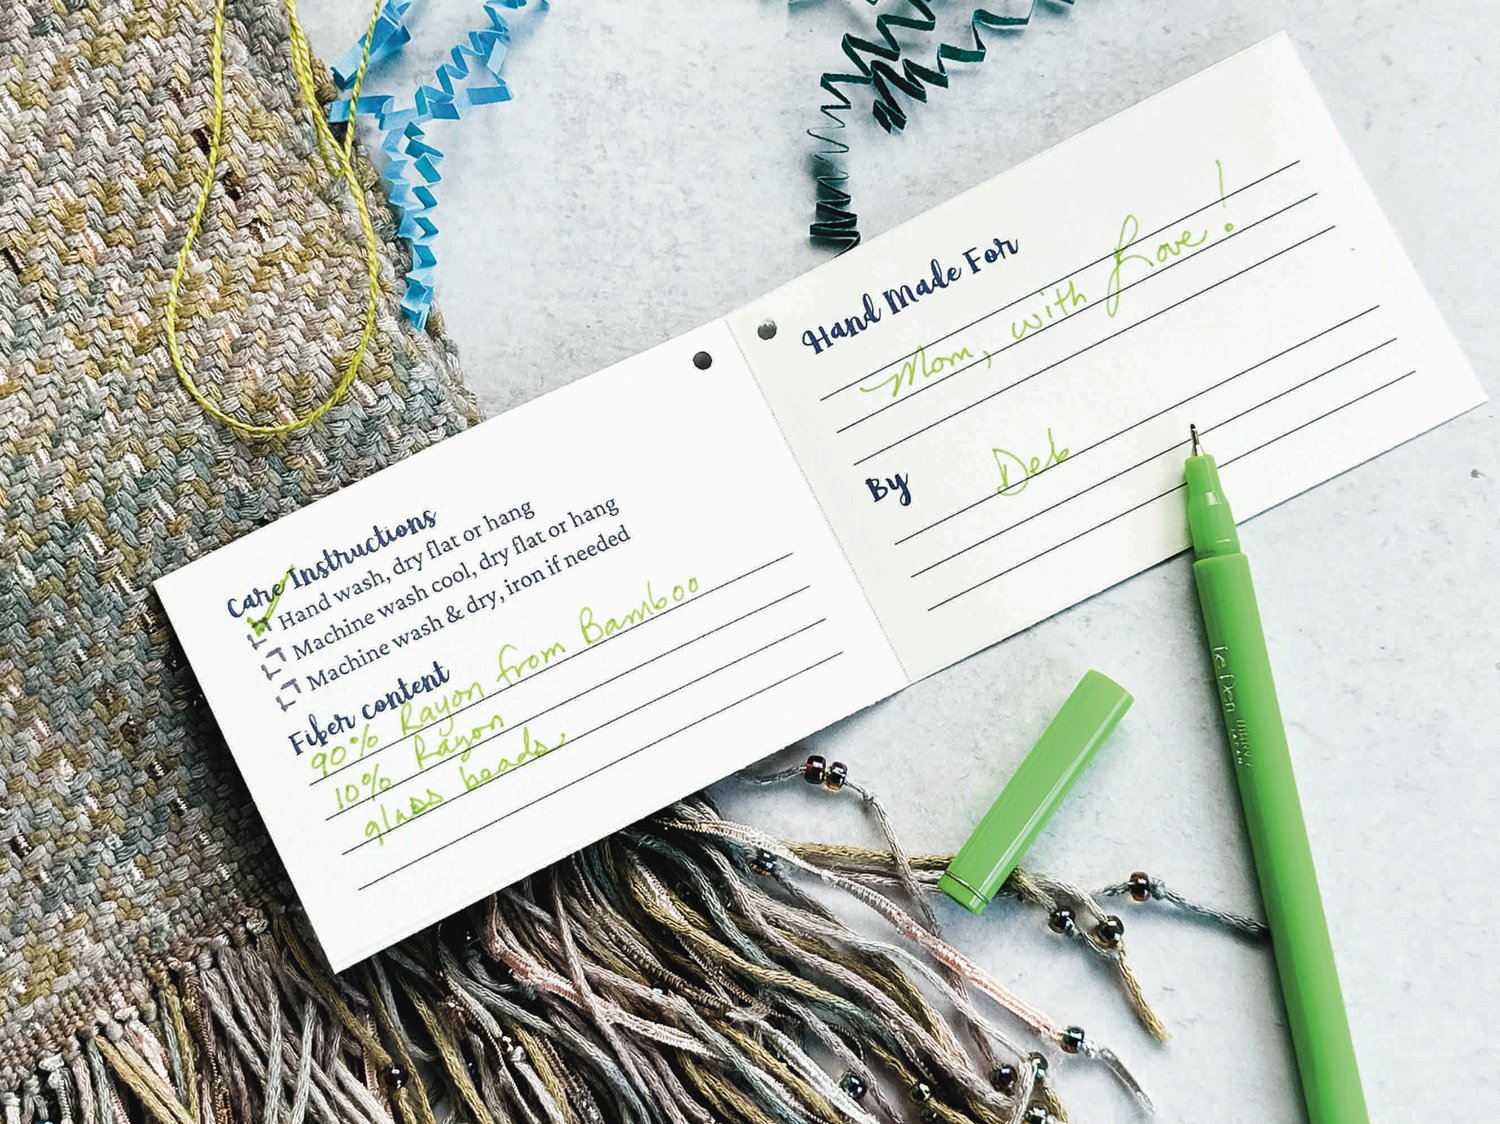 Care Instructions
Hand wash, dry flat or hang
Machine wash cool, dry flat or hang
Machine wash & dry, iron if needed
Fiber content
90% Rayon from Bamboo
10% Rayon
glass beads.
Hand Made For
Mom, with Love!
By Deb
le Pen MARVY
JAPAN